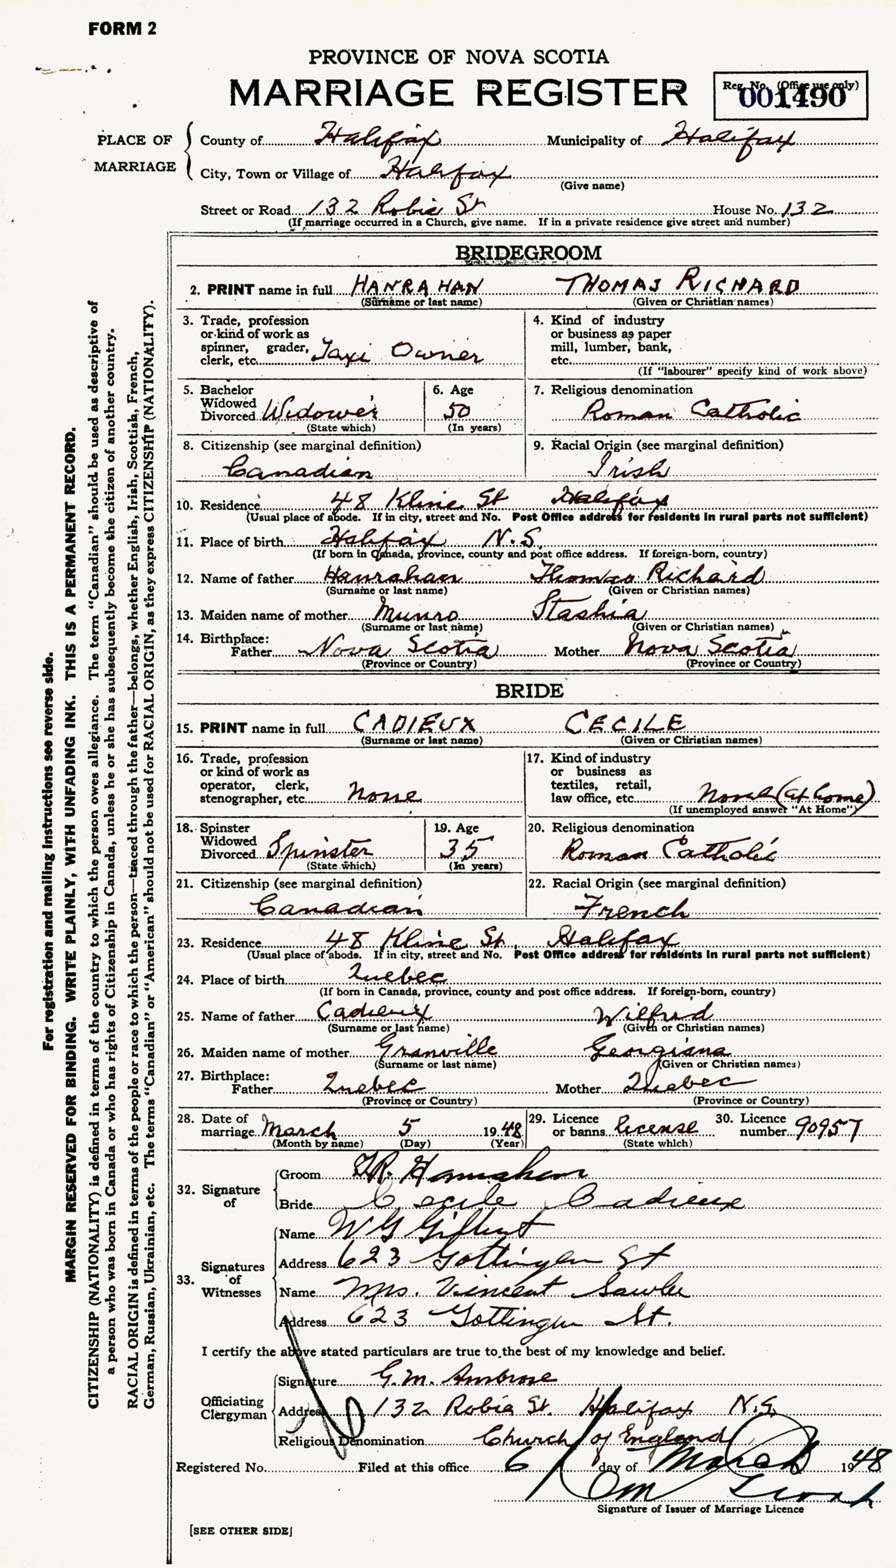 FORM 2
PROVINCE OF NOVA SCOTIA
MARRIAGE REGISTER
Reg. No. (Office use only)
001490
PLACE OF MARRIAGE
County of Halifax Municipality of Halifax
City, Town or Village of Halifax
(Give name)
Street or Road 132 Robie St House No. 132
(If marriage occurred in a Church, give name. If in a private residence give street and number)
BRIDEGROOM
2. PRINT name in full HANRAHAN THOMAS RICHARD
(Surname or last name) (Given or Christian names)
3. Trade, profession
or kind of work as
spinner, grader,
clerk, etc. Taxi Owner
4. Kind of industry
or business as paper
mill, lumber, bank,
etc.
(If "labourer" specify kind of work above)
5. Bachelor
Widowed
Divorced Widower
(State which)
6. Age
50
(In years)
7. Religious denomination
Roman Catholic
8. Citizenship (see marginal definition)
Canadian
9. Racial Origin (see marginal definition)
Irish
10. Residence 48 Kline St Halifax
(Usual place of abode. If in city, street and No. Post Office address for residents in rural parts not sufficient)
11. Place of birth Halifax N.S.
(If born in Canada, province, county and post office address. If foreign-born, country)
12. Name of father Hanrahan Thomas Richard
(Surname or last name) (Given or Christian names)
13. Maiden name of mother Munro Stashia
(Surname or last name) (Given or Christian names)
14. Birthplace:
Father Nova Scotia Mother Nova Scotia
(Province or Country) (Province or Country)
BRIDE
15. PRINT name in full CADIEUX CECILE
(Surname or last name) (Given or Christian names)
16. Trade, profession
or kind of work as
operator, clerk,
stenographer, etc. None
17. Kind of industry
or business as
textiles, retail,
law office, etc. None (at home)
(If unemployed answer "At Home")
18. Spinster
Widowed
Divorced Spinster
(State which)
19. Age
35
(In years)
20. Religious denomination
Roman Catholic
21. Citizenship (see marginal definition)
Canadian
22. Racial Origin (see marginal definition)
French
23. Residence 48 Kline St, Halifax
(Usual place of abode. If in city, street and No. Post Office address for residents in rural parts not sufficient)
24. Place of birth Quebec
(If born in Canada, province, county and post office address. If foreign-born, country)
25. Name of father Cadieux Wilfred
(Surname or last name) (Given or Christian names)
26. Maiden name of mother Granville Georgiana
(Surname or last name) (Given or Christian names)
27. Birthplace:
Father Quebec Mother Quebec
(Province or Country) (Province or Country)
28. Date of
marriage March 5 1948
(Month by name) (Day) (Year)
29. Licence
or banns license
(State which)
30. Licence
number 90957
32. Signature of
Groom T.R. Hanrahan
Bride Cecile Cadieux
33. Signatures of Witnesses
Name W G Gilbert
Address 623 Gottingen St
Name Mrs. Vincent
Address 623 Gottingen St.
I certify the above stated particulars are true to the best of my knowledge and belief.
Officiating Clergyman
Signature G.M. Ambrose
Address 132 Robie St. Halifax N.S.
Religious Denomination Church of England
Registered No. Filed at this office 6 day of March 1948
Signature of Issuer of Marriage Licence
[SEE OTHER SIDE]
For registration and mailing instructions see reverse side.
MARGIN RESERVED FOR BINDING. WRITE PLAINLY, WITH UNFADING INK. THIS IS A PERMANENT RECORD.
CITIZENSHIP (NATIONALITY) is defined in terms of the country to which the person owes allegiance. The term "Canadian" should be used as descriptive of
a person who was born in Canada or who has rights of Citizenship in Canada, unless he or she has subsequently become the citizen of another country.
RACIAL ORIGIN is defined in terms of the people or race to which the person—traced through the father—belongs, whether English, Irish, Scottish, French,
German, Russian, Ukrainian, etc. The terms "Canadian" or "American" should not be used for RACIAL ORIGIN, as they express CITIZENSHIP (NATIONALITY).